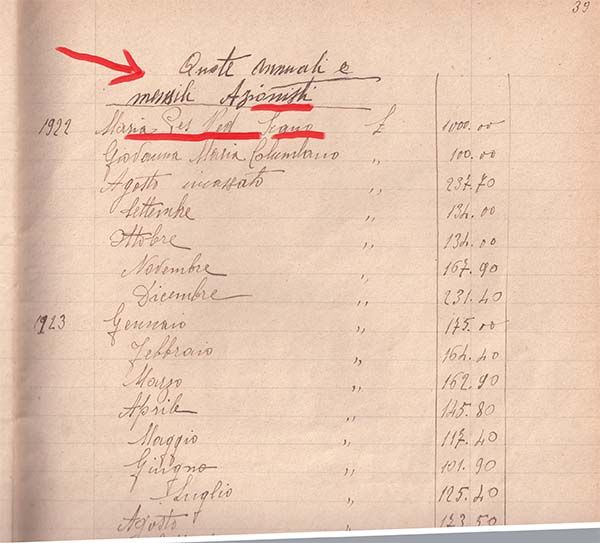 39
Quote annuali e
mensili Azionisti
1922 Maria Ges Ved Scano £ 1000.00
Giovanna Maria Columbano ,, 100.00
Agosto incassato ,, 237.70
Settembre ,, 134.00
Ottobre ,, 134.00
Novembre ,, 167.90
Dicembre ,, 231.40
1923 Gennaio ,, 175.00
Febbraio ,, 164.40
Marzo ,, 162.90
Aprile ,, 145.80
Maggio ,, 117.40
Giugno ,, 101.90
Luglio ,, 125.40
Agosto ,, 123.50